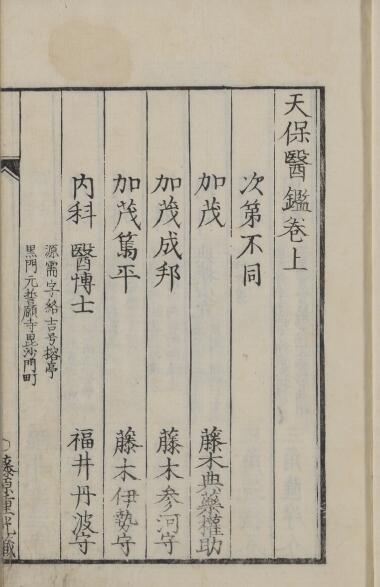 天保醫鑑卷上
次第不同
加茂 藤木典藥權助
加茂成邦 藤木参河守
加茂篤平 藤木伊勢守
内科 醫博士 福井丹波守
源需字終吉号榕亭
黒門元誓願寺毘沙門町